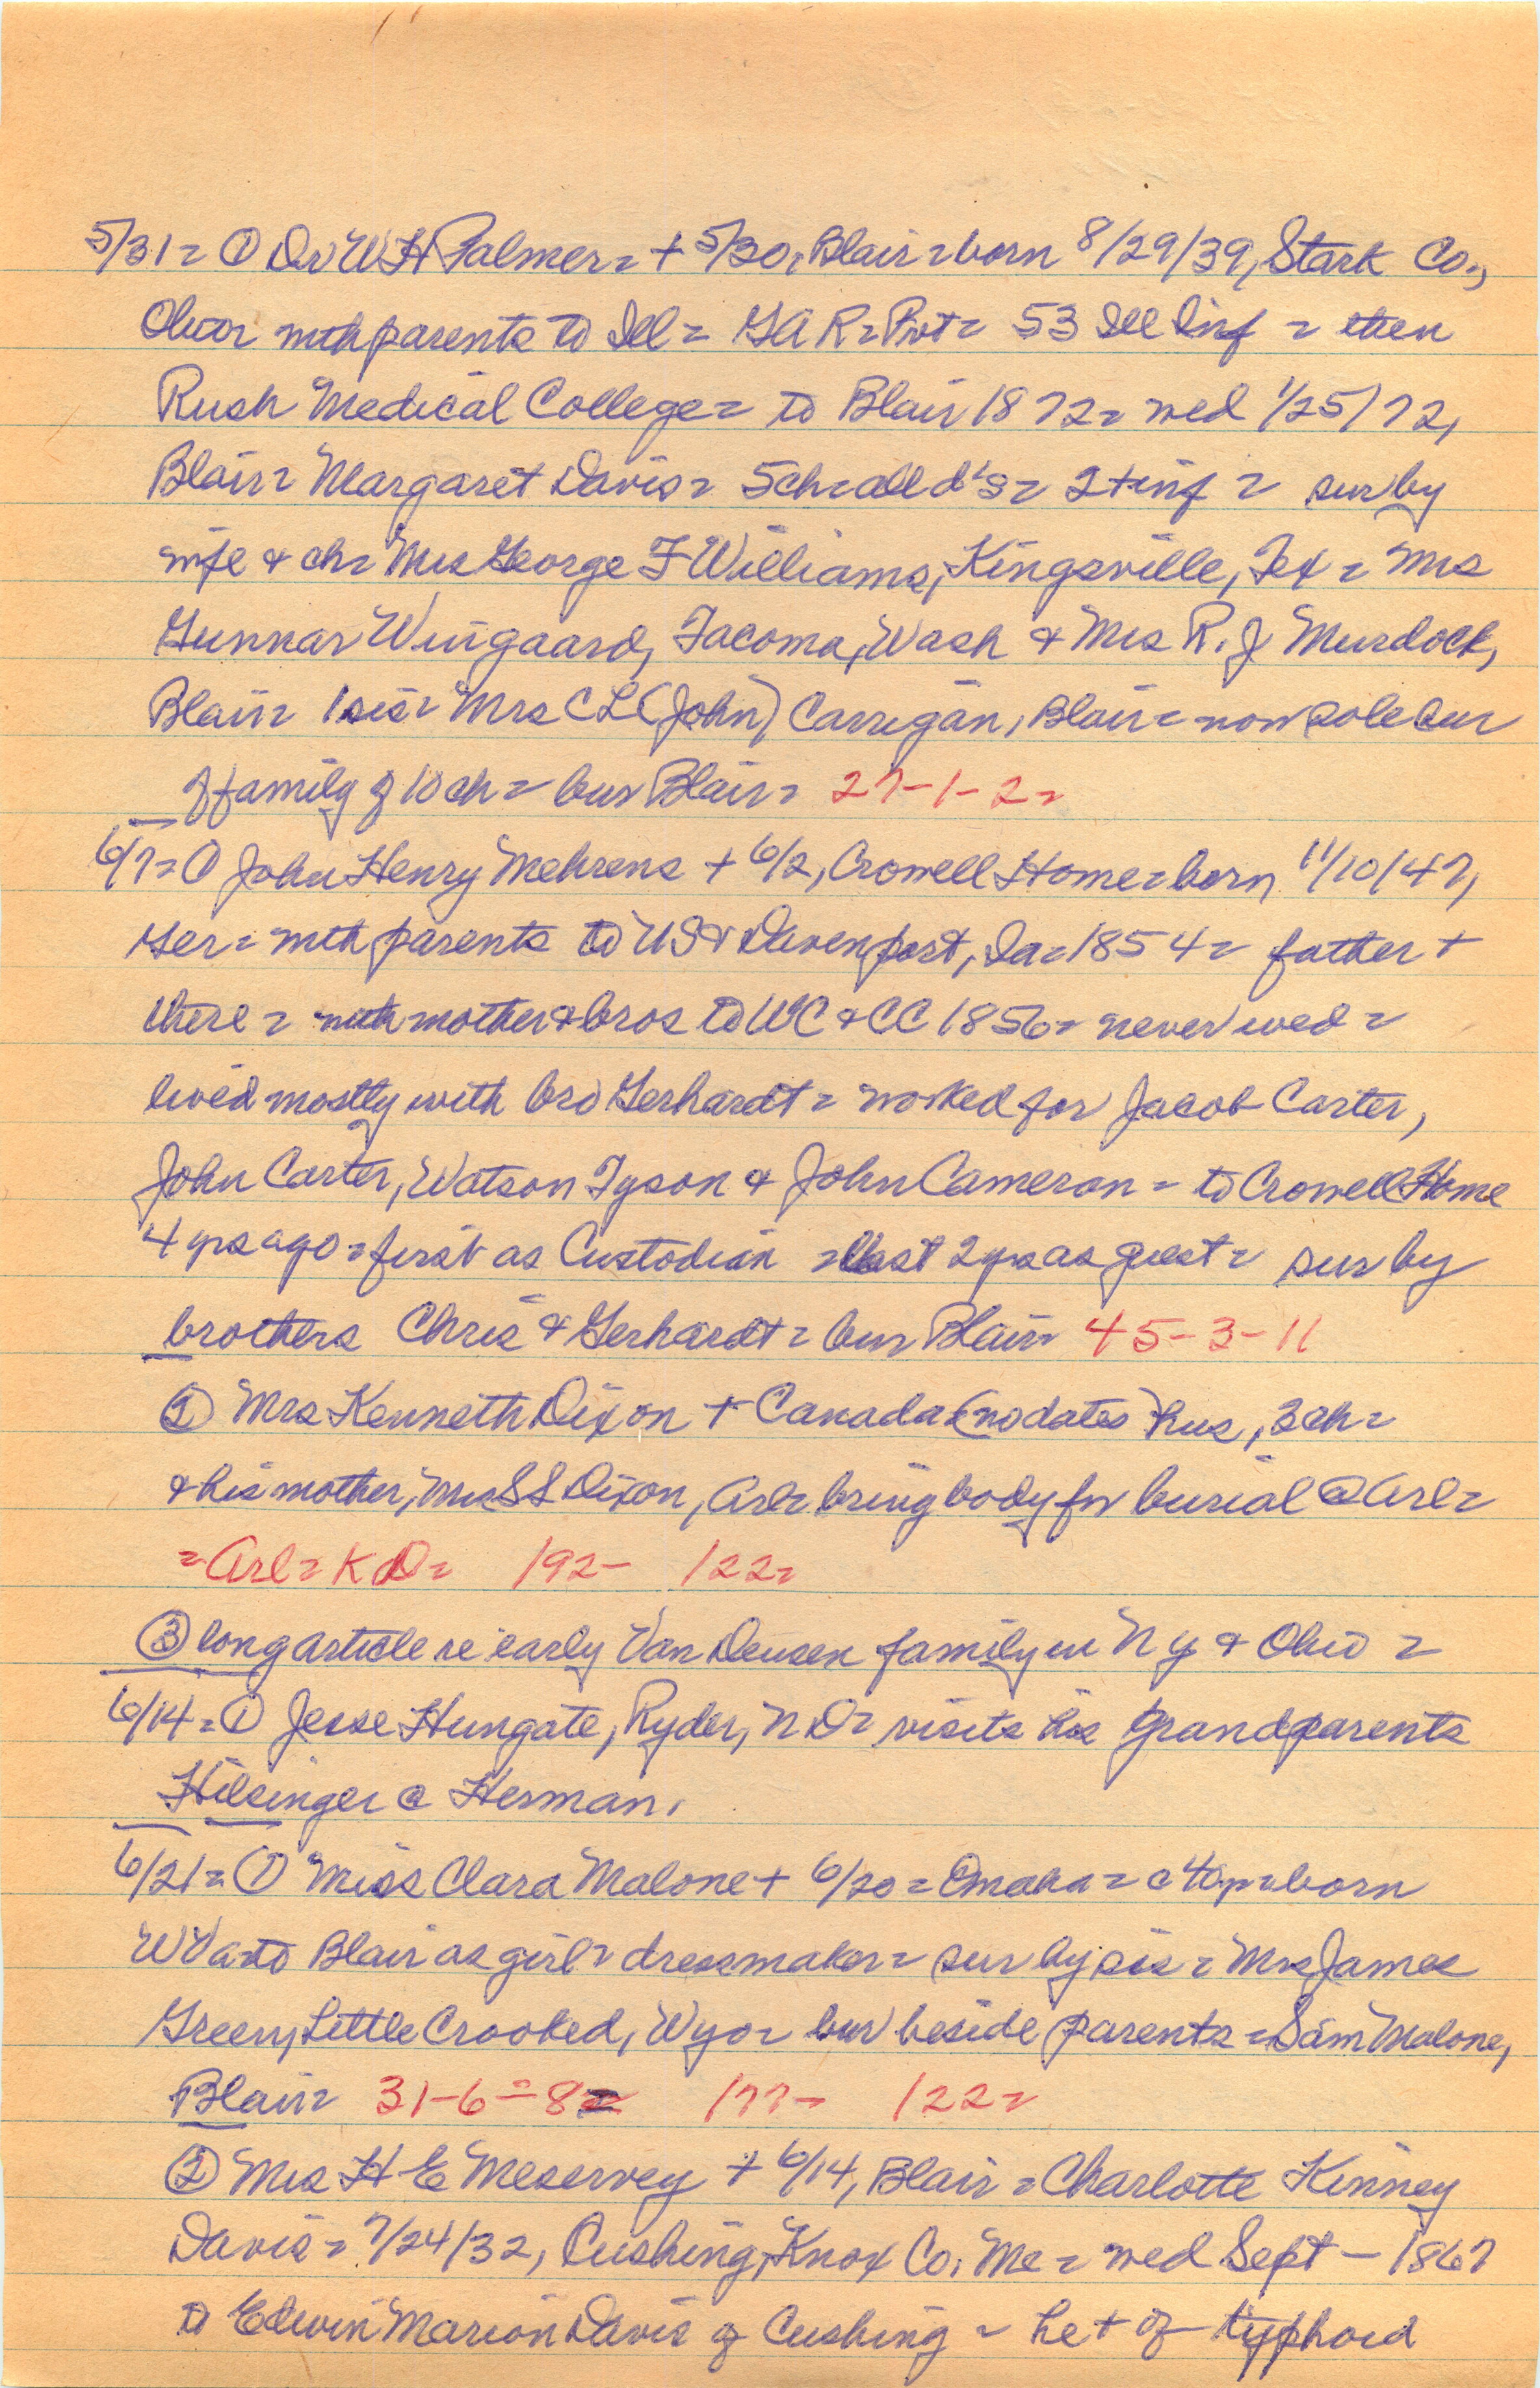 5/31= ① Dr W H Palmer= + 5/30, Blair= born 8/29/39, Stark Co.,
Ohio= with parents to Ill= GAR= Pvt= 53 Ill Inf = then
Rush Medical College= to Blair 1872= wed 1/25/72,
Blair= Margaret Davis= 5ch= all d's= 2+inf = sur by
wife & ch= Mrs George F Williams, Kingsville, Tex = Mrs
Gunnar Wingaard, Tacoma, Wash & Mrs R. J Murdock,
Blair= 1 sis= Mrs C L (John) Carrigan, Blair= now sole sur
of family of 10 ch= bur Blair= 27-1-2=
6/7= ① John Henry Mehrens + 6/2, Crowell Home= born 11/10/47,
Ger= with parents to US & Davenport, Ia= 1854= father +
there = with mother & bros to WC & CC 1856= never wed =
lived mostly with bro Gerhardt= worked for Jacob Carter,
John Carter, Watson Tyson & John Cameron = to Crowell Home
4 yrs ago= first as Custodian = last 2 yrs as guest= sur by
brothers Chris & Gerhardt= bur Blair= 45-3-11
② Mrs Kenneth Dixon + Canada (no dates) hus, 3 ch=
& his mother, Mrs S S Dixon, Arl= bring body for burial @ Arl=
= Arl= K D= 192- 122=
③ long article re early Van Deusen family in N Y & Ohio =
6/14= ① Jesse Hungate, Ryder, N D= visits his grandparents
Hilsinger @ Herman.
6/21= ① Miss Clara Malone + 6/20= Omaha= c 40yr= born
W Va= to Blair as girl= dressmaker= sur by sis= Mrs James
Green, Little Crooked, Wyo= bur beside parents= Sam Malone,
Blair= 31-6=8= 177- 122=
② Mrs H E Meservey + 6/14, Blair= Charlotte Kinney
Davis= 7/24/32, Cushing, Knox Co, Me= wed Sept - 1867
to Edwin Marion Davis of Cushing = he + of typhoid